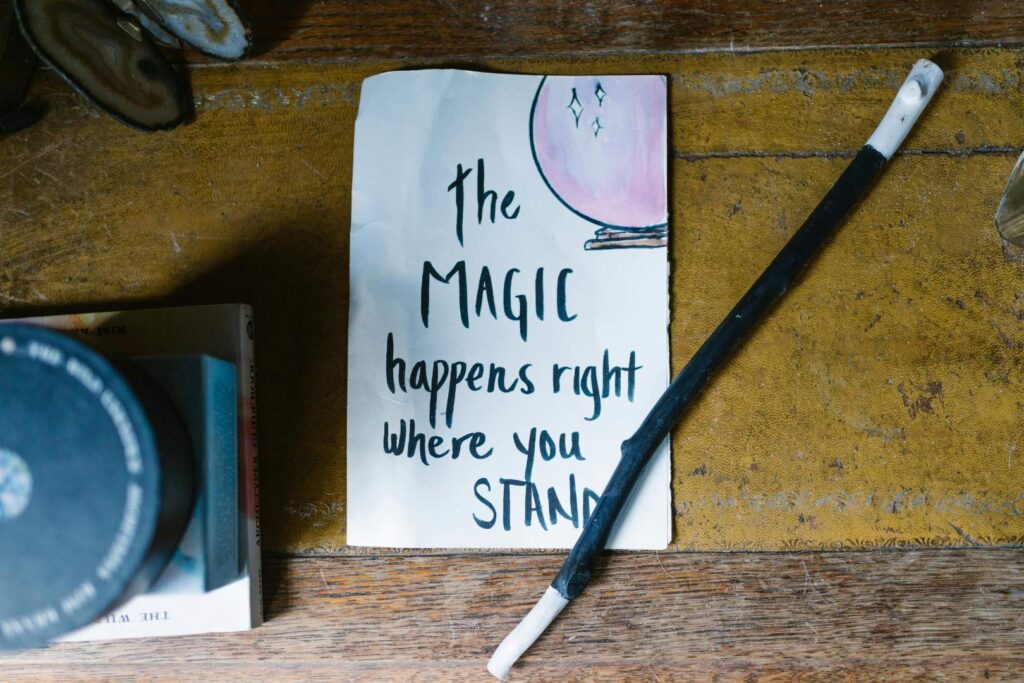 the
MAGIC
happens right
where you
STAND
THE WIL